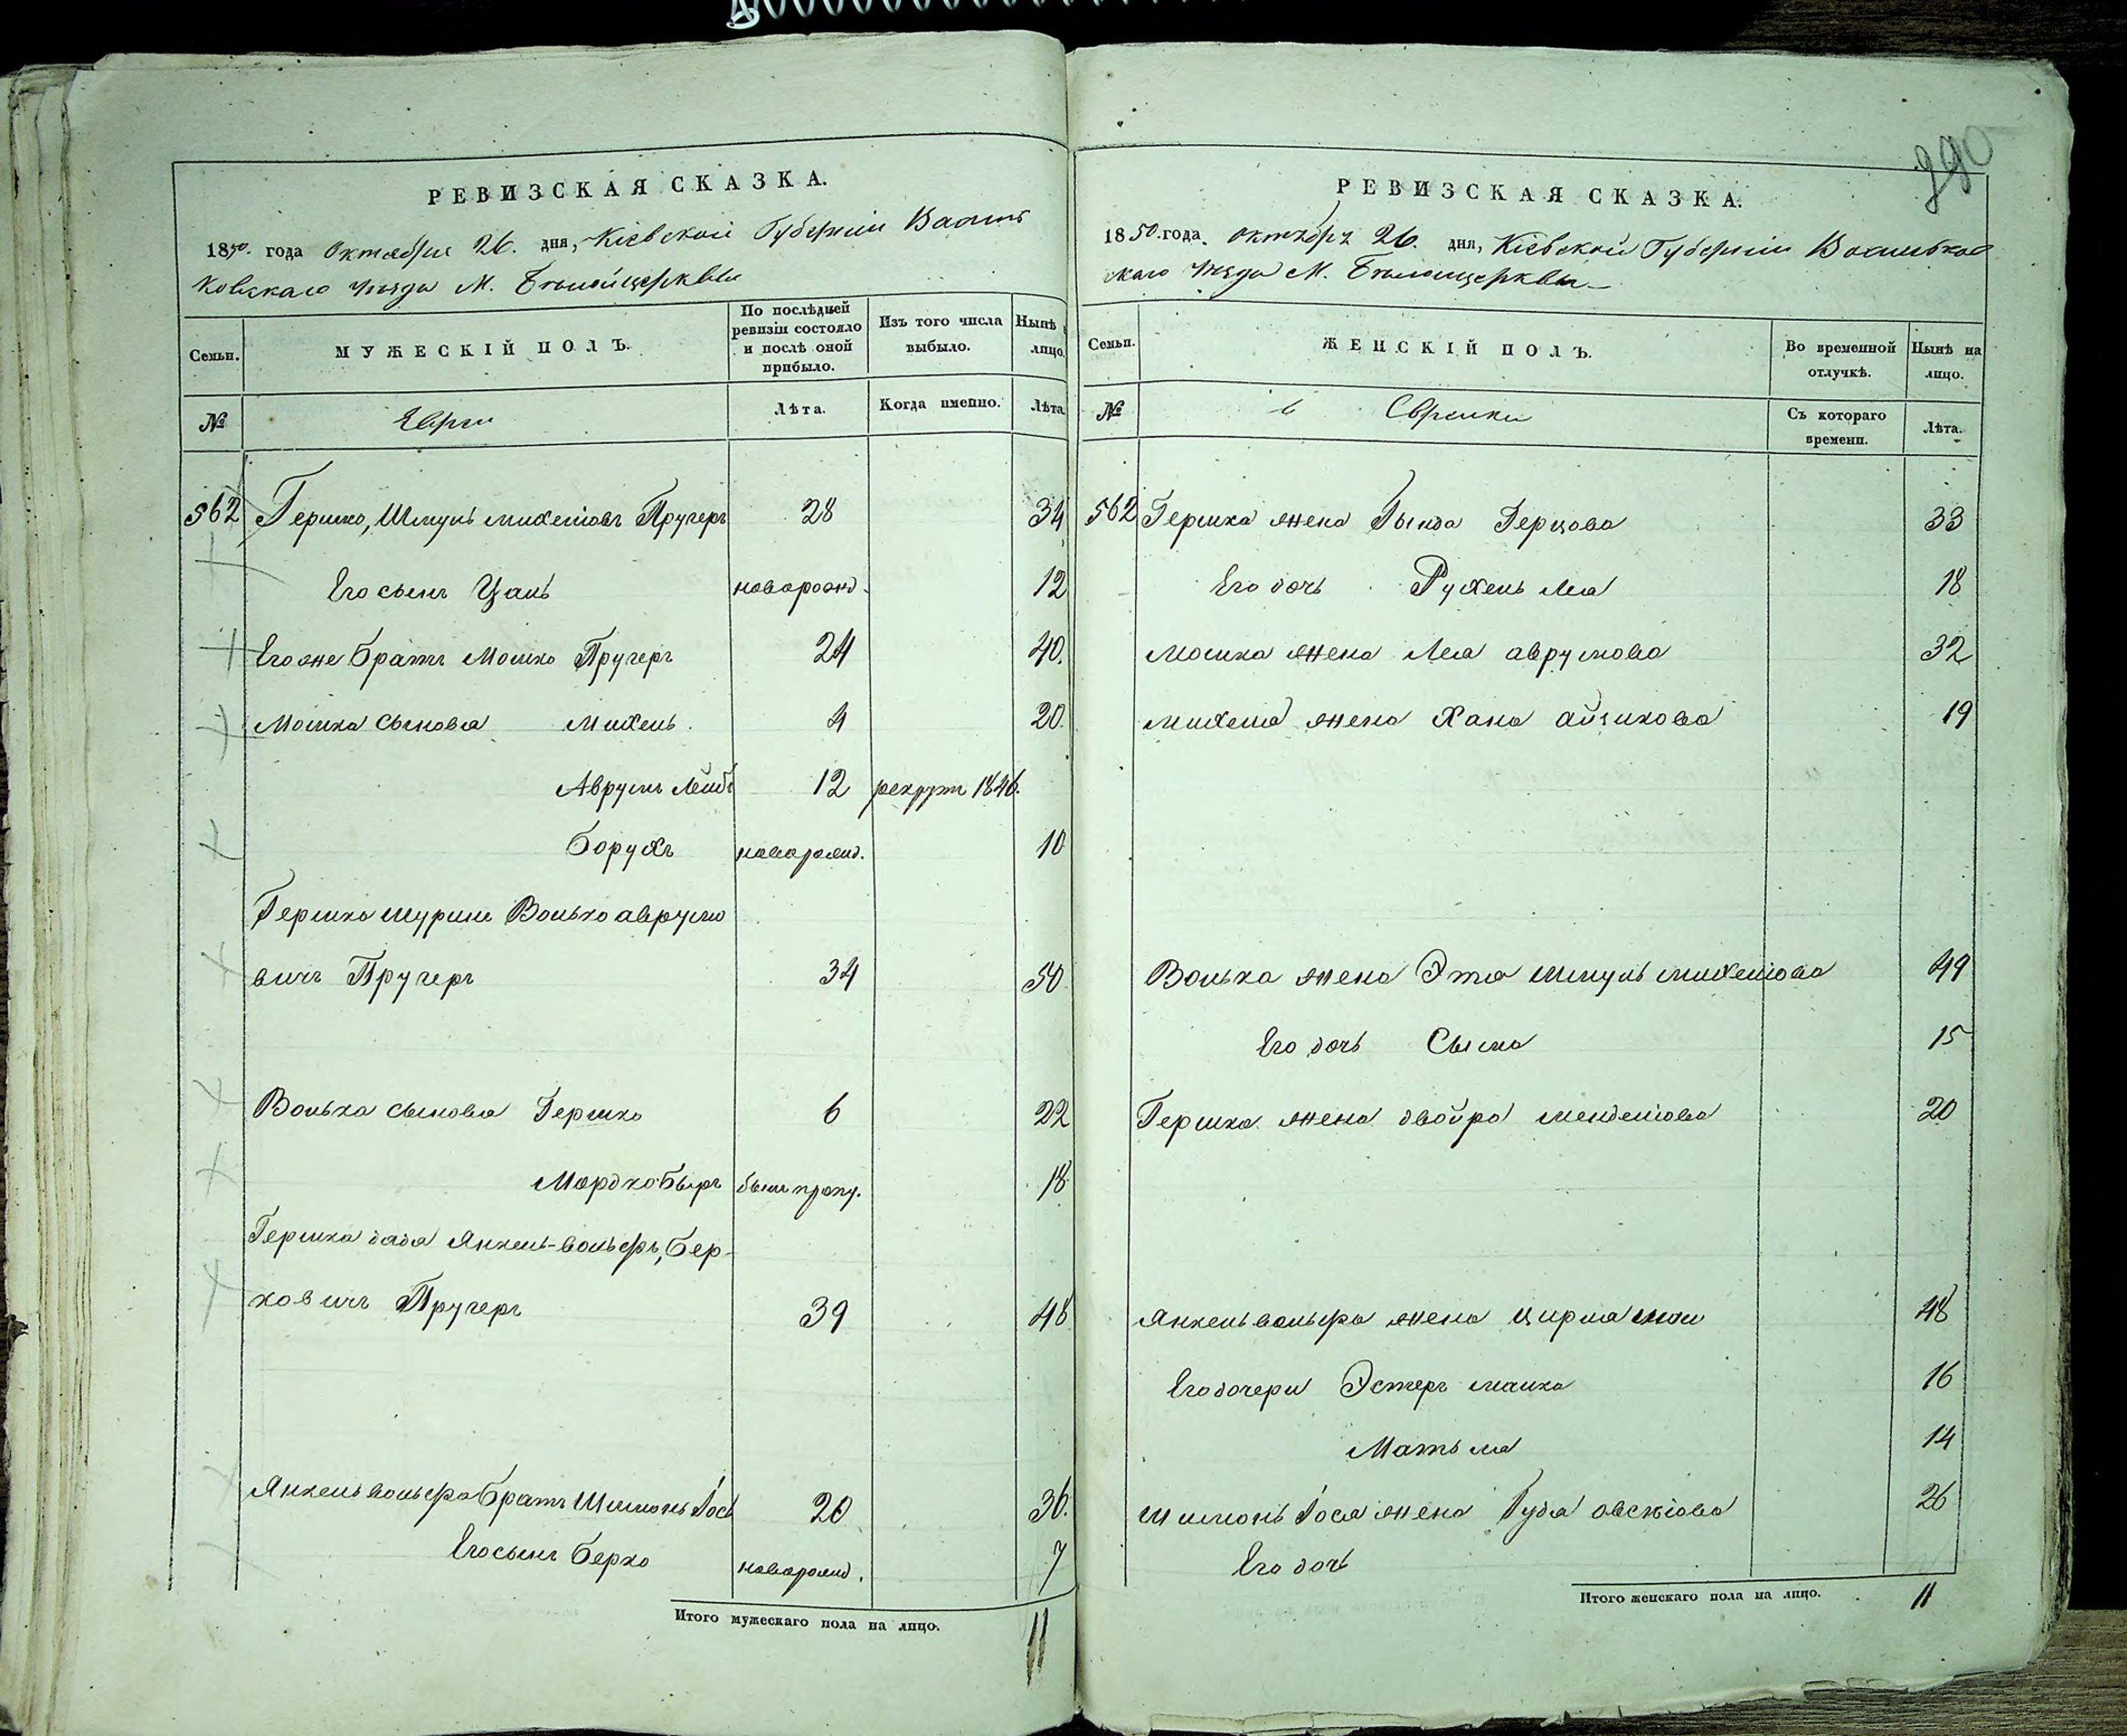 290
РЕВИЗСКАЯ СКАЗКА.
1850. года Октября 26. дня, Кіевской Губерніи Василь
ковскаго уѣзда М. Бѣлойцеркви
Семьи.
МУЖЕСКІЙ ПОЛЪ.
По послѣдней ревизіи состояло и послѣ оной прибыло.
Изъ того числа выбыло.
Нынѣ лицо.
№
Евреи
Лѣта.
Когда именно.
Лѣта.
562 Гершко, Шмуль михелювъ Пругеръ 28 34
Его сынъ Цаль новорожд. 12
Его же братъ Мошко Пругеръ 24 40.
Мошка сыновья михель. 4 20.
Аврумъ Лейбъ 12 рекрутъ 1846.
Борухъ новорожд. 10
Гершка шуринъ Волько аврумо
вичъ Пругеръ 34 50
Волька сыновья Гершко 6 22
Мордко Беръ былъ пропу. 18
Гершка дядя Янкель-вольфъ, Бер-
ковичъ Пругеръ 39 48
Янкель вольфа братъ Шимонъ Іось 20 36.
Его сынъ Берко новорожд. 7
Итого мужескаго пола на лицо. 11
РЕВИЗСКАЯ СКАЗКА.
1850. года. октября 26. дня, Кіевской Губерніи Васильков
скаго уѣзда М. Бѣлойцеркви
Семьи.
ЖЕНСКІЙ ПОЛЪ.
Во временной отлучкѣ.
Нынѣ на лицо.
№
Еврейки
Съ котораго времени.
Лѣта.
562 Гершка жена Гинда Герцова 33
Его дочь Рухель Леа 18
Мошка жена Леа аврумова 32
михеля жена Хана айзикова 19
Волька жена Эта шмуль михелюва 49
Его дочь Сыма 15
Гершка жена двойра менделюва 20
Янкель вольфа жена Цирля 48
Его дочери Эстеръ малка 16
Матля 14
Шимонъ Іося жена Гудя овсѣюва 26
Его дочь
Итого женскаго пола на лицо. 11